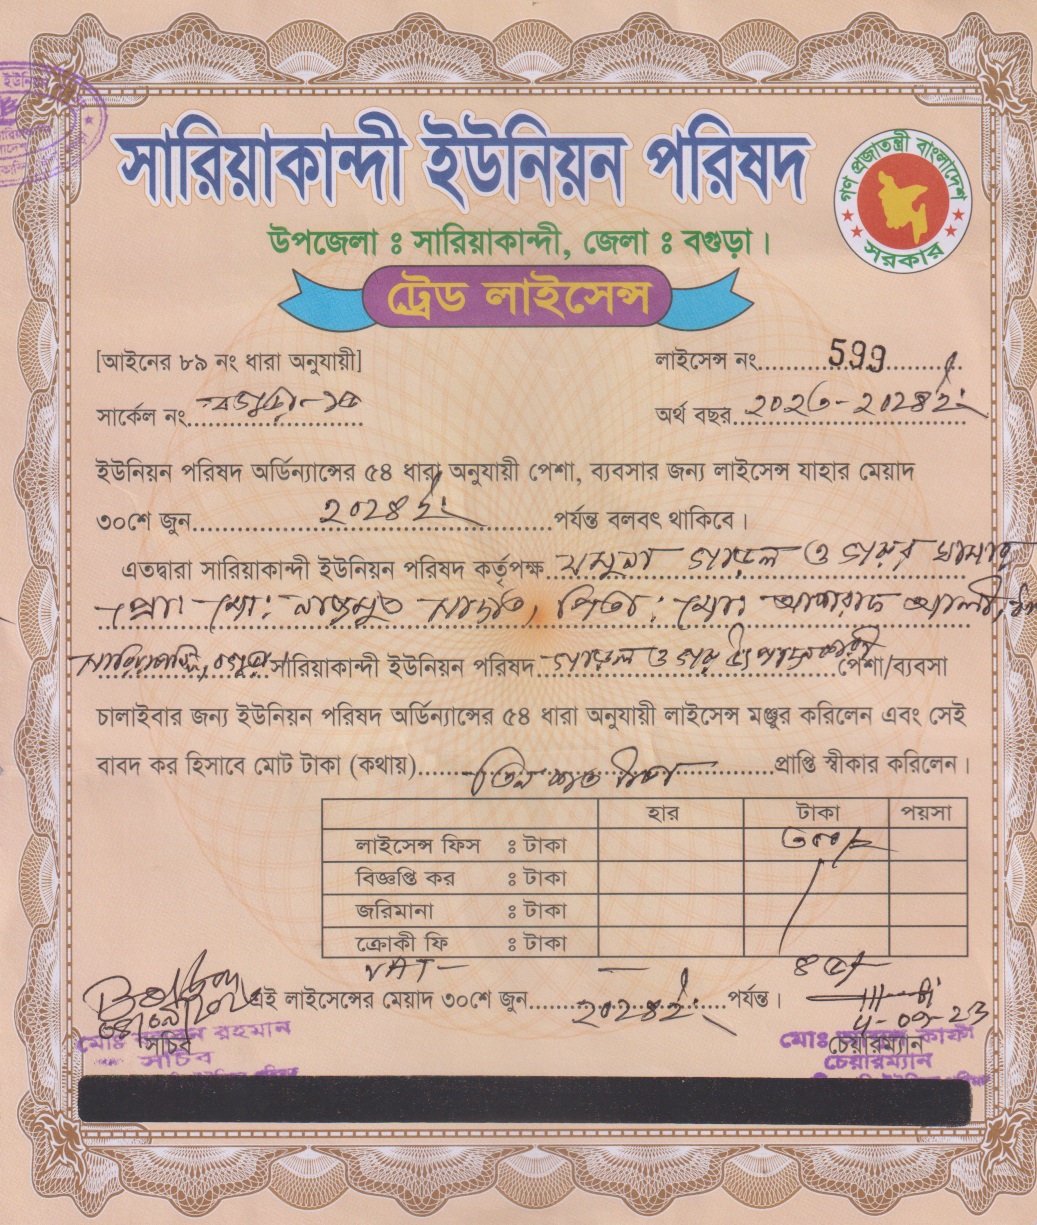 সারিয়াকান্দী ইউনিয়ন পরিষদ
গণ প্রজাতন্ত্রী বাংলাদেশ
সরকার
উপজেলা ঃ সারিয়াকান্দী, জেলা ঃ বগুড়া।
ট্রেড লাইসেন্স
[আইনের ৮৯ নং ধারা অনুযায়ী] লাইসেন্স নং 599
সার্কেল নং অর্থ বছর ২০২৩-২০২৪ ইং
ইউনিয়ন পরিষদ অর্ডিন্যান্সের ৫৪ ধারা অনুযায়ী পেশা, ব্যবসার জন্য লাইসেন্স যাহার মেয়াদ
৩০শে জুন ২০২৪ ইং পর্যন্ত বলবৎ থাকিবে।
এতদ্বারা সারিয়াকান্দী ইউনিয়ন পরিষদ কর্তৃপক্ষ যমুনা গাড়ল ও গরুর খামার
প্রোঃ মোঃ পিতা: মোঃ আলী
সারিয়াকান্দি, বগুড়া। সারিয়াকান্দী ইউনিয়ন পরিষদ গাড়ল ও গরু পেশা/ব্যবসা
চালাইবার জন্য ইউনিয়ন পরিষদ অর্ডিন্যান্সের ৫৪ ধারা অনুযায়ী লাইসেন্স মঞ্জুর করিলেন এবং সেই
বাবদ কর হিসাবে মোট টাকা (কথায়) তিন শত টাকা প্রাপ্তি স্বীকার করিলেন।
হার টাকা পয়সা
লাইসেন্স ফিস ঃ টাকা ৩০০/=
বিজ্ঞপ্তি কর ঃ টাকা
জরিমানা ঃ টাকা
ক্রোকী ফি ঃ টাকা
VAT - — ৪৫/-
এই লাইসেন্সের মেয়াদ ৩০শে জুন ২০২৪ ইং পর্যন্ত।
সচিব চেয়ারম্যান
মোঃ রহমান
সচিব
মোঃ কাফী
চেয়ারম্যান